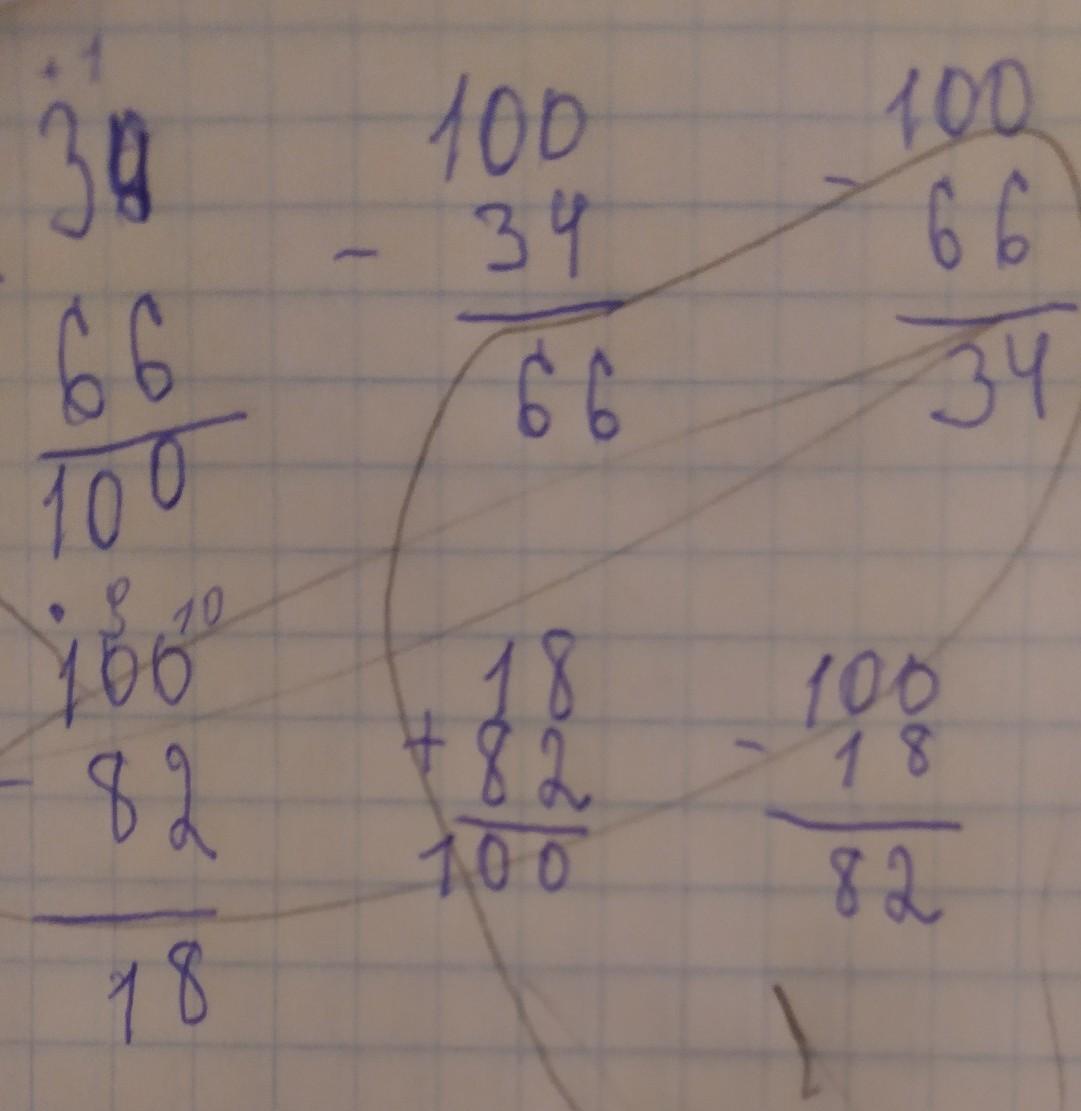 + 1
34
66
100
100
- 34
66
100
- 66
34
. 9 10
100
- 82
18
18
+ 82
100
100
- 18
82